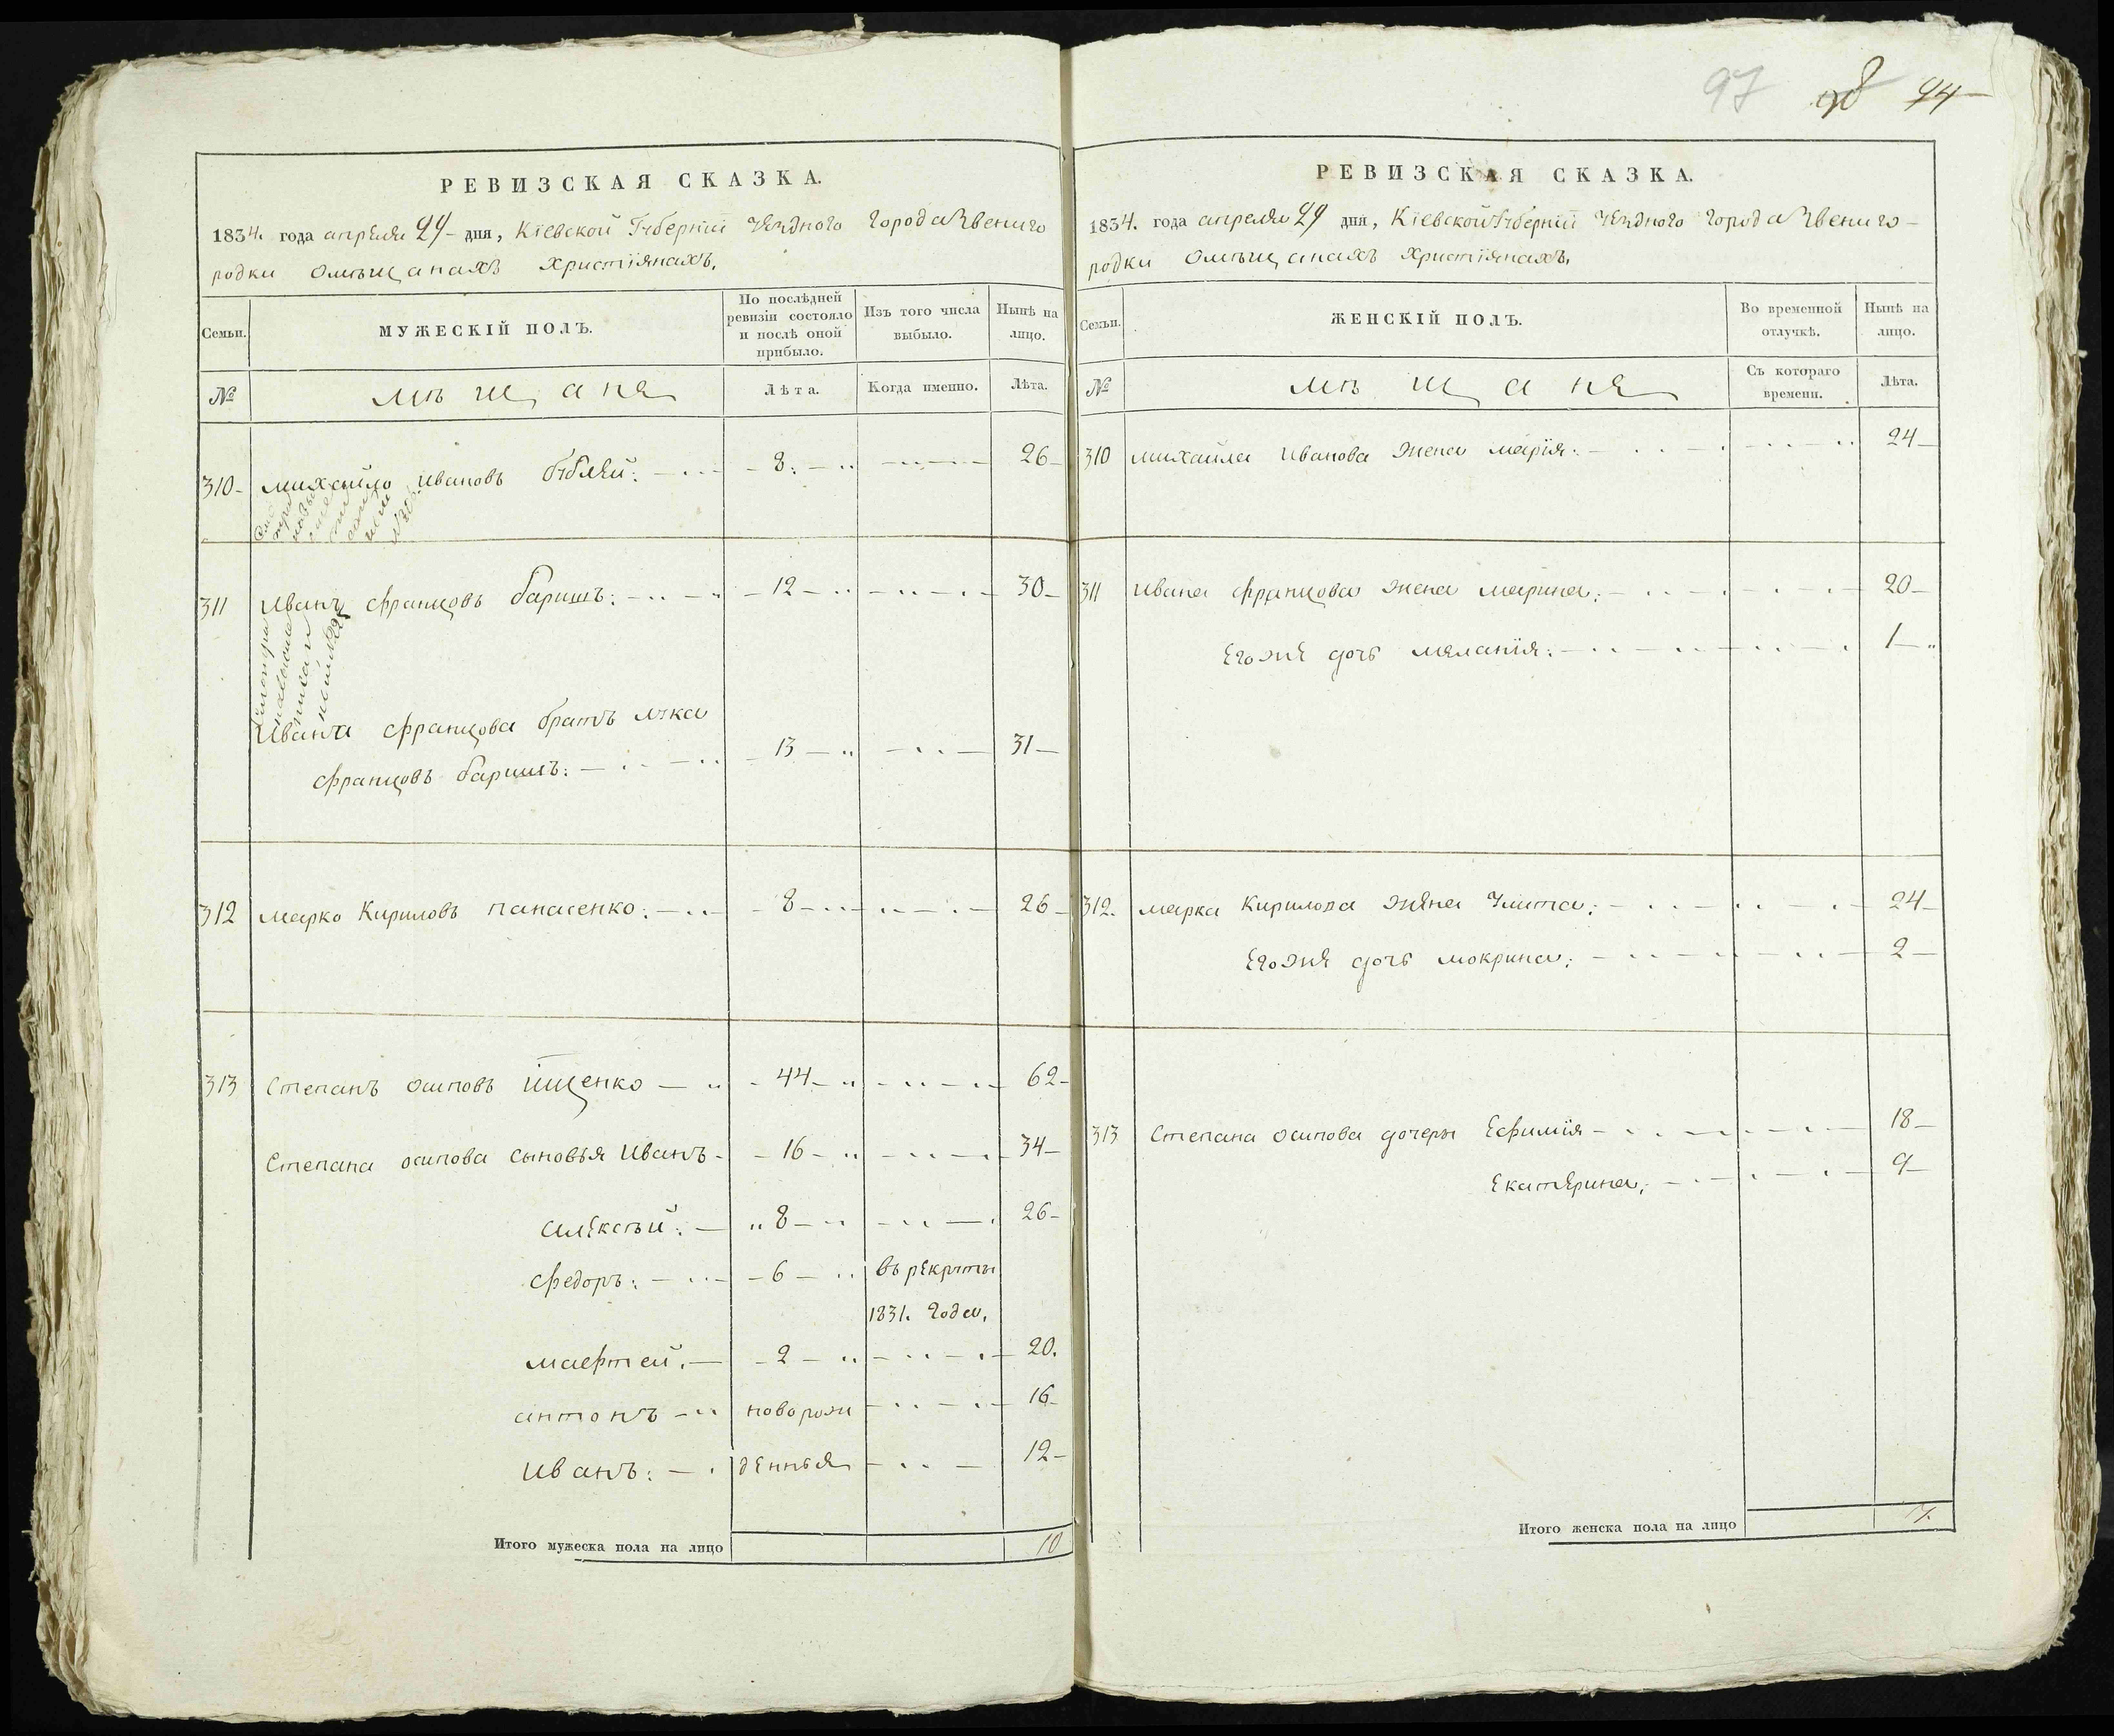 97 98 94
РЕВИЗСКАЯ СКАЗКА.
1834. года апреля 29 дня, Кіевской Губерніи уѣзднаго города Звениго
родки омѣщанахъ христіянахъ.
Семьи.
МУЖЕСКІЙ ПОЛЪ.
По послѣдней
ревизіи состояло
и послѣ оной
прибыло.
Изъ того числа
выбыло.
Нынѣ на
лицо.
№
мѣщане
Лѣта.
Когда именно.
Лѣта.
310 михайло ивановъ бублей: 8. 26
311 иванъ францовъ баришъ: 12 30
ивана францова братъ лука
францовъ баришъ: 13 31
312 марко кириловъ панасенко: 8 26
313 степанъ осиповъ ищенко 44 62
степана осипова сыновья иванъ 16 34
алексѣй: 8 26
федоръ: 6 въ рекруты
1831. года.
мафтей. 2 20.
антонъ новорож 16
иванъ: денные 12
Итого мужеска пола на лицо 10
РЕВИЗСКАЯ СКАЗКА.
1834. года апреля 29 дня, Кіевской Губерніи уѣзднаго города Звениго-
родки омѣщанахъ христіянахъ.
Семьи.
ЖЕНСКІЙ ПОЛЪ.
Во временной
отлучкѣ.
Нынѣ на
лицо.
№
мѣщане
Съ котораго
времени.
Лѣта.
310 михайла иванова жена марія: 24
311 ивана францова жена марина: 20
егоже дочь меланія: 1
312. марка кирилова жена улита: 24
егоже дочь мокрина: 2
313 степана осипова дочеры ефимія 18
екатерина: 9
Итого женска пола на лицо 7.